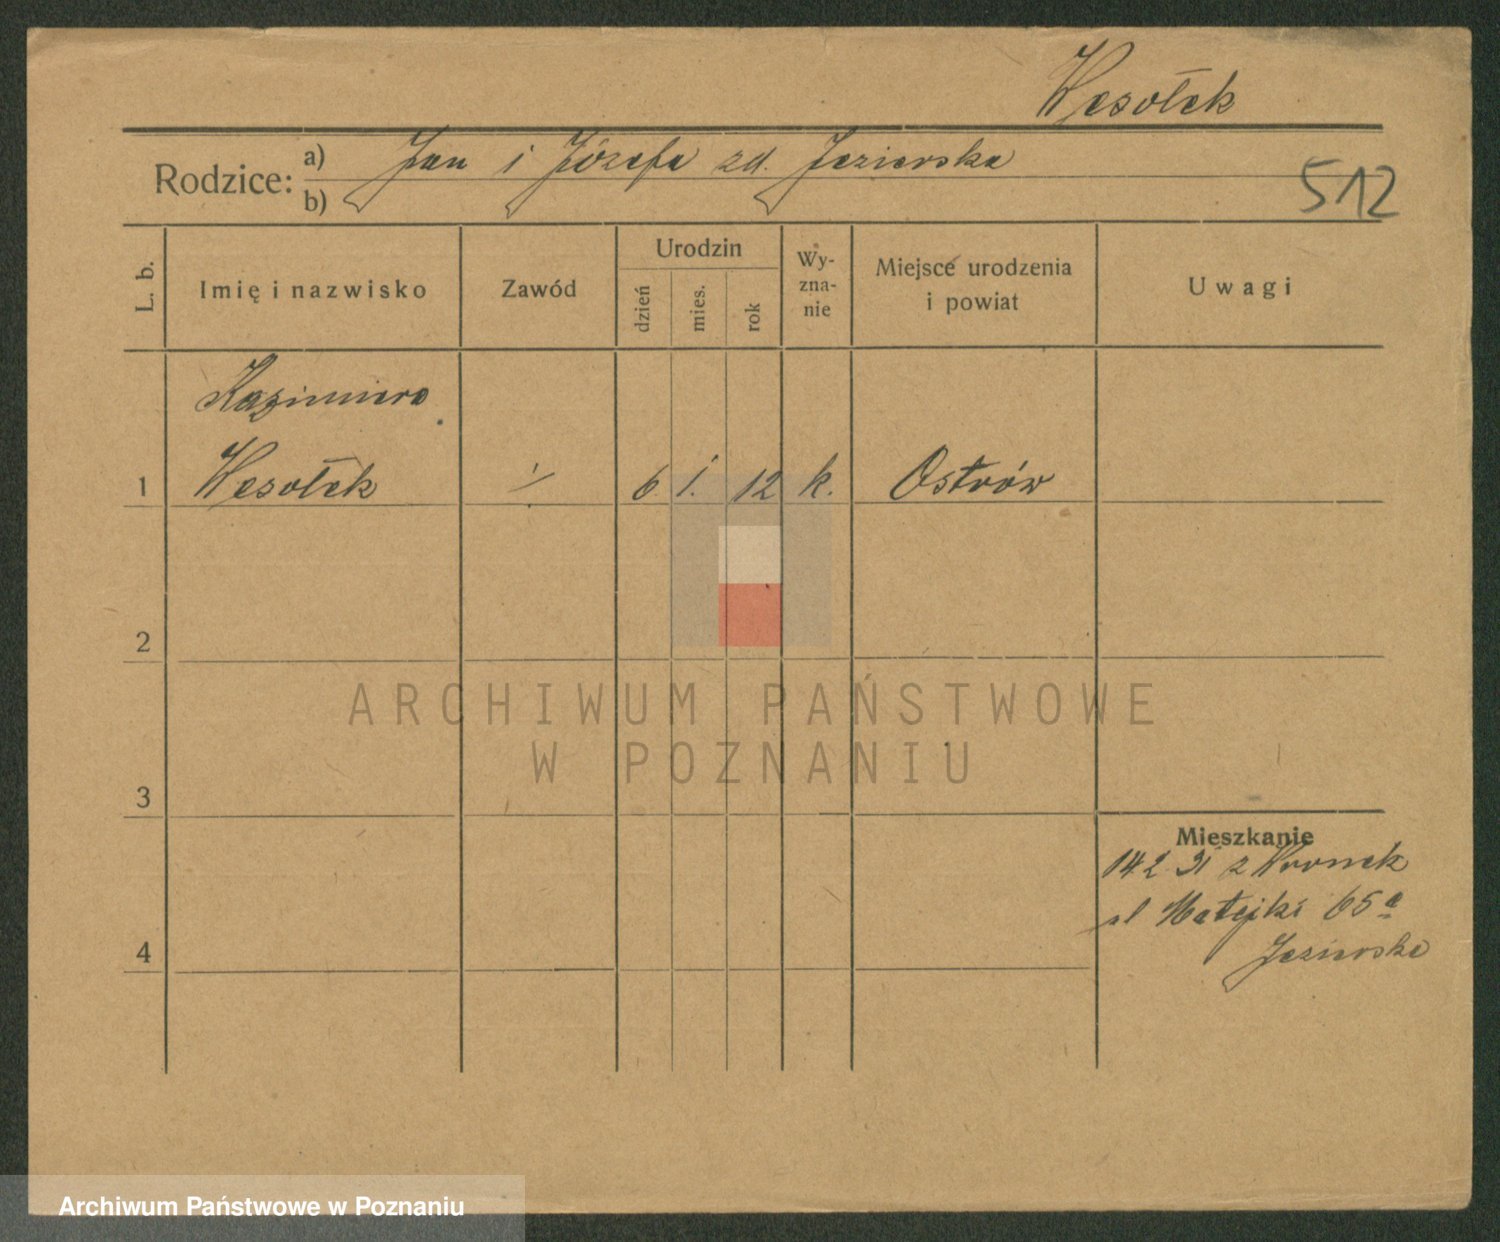 Wesołek
Rodzice: a) Jan i Józefa zd. Jezierska
b)
512
L. b.
Imię i nazwisko
Zawód
Urodzin
dzień
mies.
rok
Wy-
zna-
nie
Miejsce urodzenia
i powiat
Uwagi
Kazimiera
1 Wesołek 6 1. 12 k. Ostrów
2
3
4
Mieszkanie
14 2 31 z Wronek
ul Matejki 65a
Jezierska
ARCHIWUM PAŃSTWOWE
W POZNANIU
Archiwum Państwowe w Poznaniu